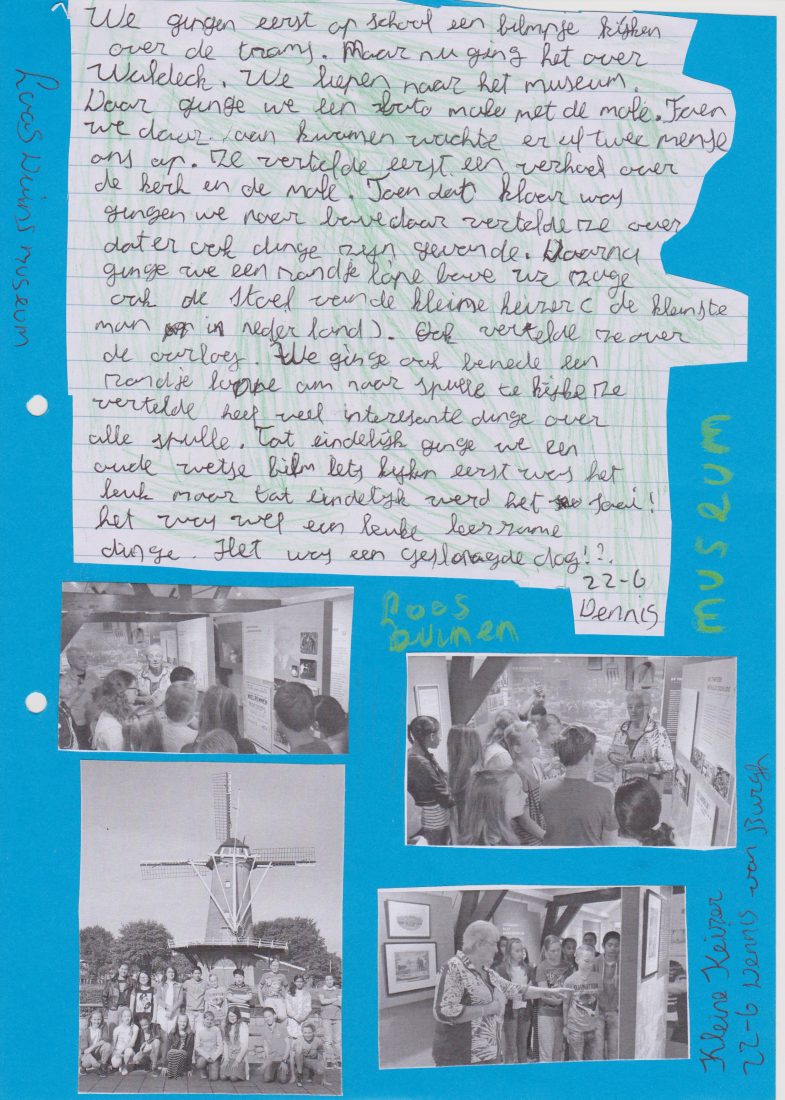 We gingen eerst op school een filmpje kijken
over de trams. Maar nu ging het over
Waldeck. We liepen naar het museum.
Daar ginge we een foto make met de mole. Toen
we daar aan kwamen wachte er al twee mense
ons op. Ze vertelde eerst een verhaal over
de kerk en de mole. Toen dat klaar was
gingen we naar bove daar vertelde ze over
dat er ook dinge zijn gevonde. Daarna
ginge we een rondje lope bove we zage
ook de stoel van de kleine keizer ( de kleinste
man in nederland). Ook vertelde ze over
de oorlog We ginge ook benede een
rondje lope om naar spulle te kijke ze
vertelde heel veel interesante dinge over
alle spulle. Tot eindelijk ginge we een
oude wetse film iets kijken eerst was het
leuk maar tot eindelijk werd het saai!
het was wel een leuke leerzame
dinge. Het was een geslaagde dag!?.
22-6
Dennis
Loosduins museum
museum
Loos
Duinen
Kleine Keizer
22-6 Dennis van Burgh